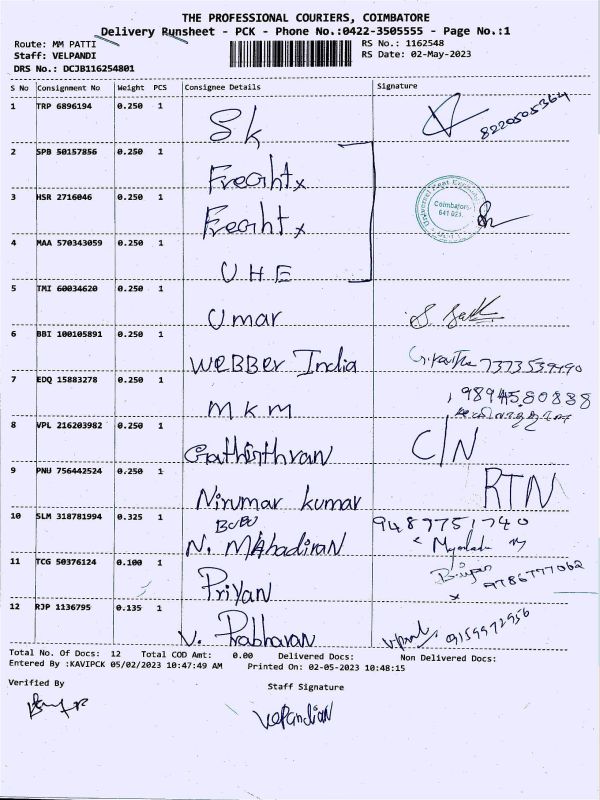 THE PROFESSIONAL COURIERS, COIMBATORE
Delivery Runsheet - PCK - Phone No.:0422-3505555 - Page No.:1
Route: MM PATTI
RS No.: 1162548
Staff: VELPANDI
RS Date: 02-May-2023
DRS No.: DCJB116254801
S No Consignment No Weight PCS Consignee Details Signature
1 TRP 6896194 0.250 1 Sk 8220505364
2 SPB 50157856 0.250 1 Freight x
3 HSR 2716046 0.250 1 Freight x
Coimbatore-
641 021.
4 MAA 570343059 0.250 1 UHE
5 TMI 60034620 0.250 1 Umar
6 BBI 100105891 0.250 1 WEBBER India 7373539490
7 EDQ 15883278 0.250 1 MKM 9894580838
8 VPL 216203982 0.250 1 Gathirthvan C/N
9 PNU 756442524 0.250 1 Nirumar kumar RTN
10 SLM 318781994 0.325 1 BUBU N. MAhadiran 9487751740
11 TCG 50376124 0.100 1 Priyan 9786777062
12 RJP 1136795 0.135 1 V. Prabharan 9159972956
Total No. Of Docs: 12 Total COD Amt: 0.00 Delivered Docs: Non Delivered Docs:
Entered By :KAVIPCK 05/02/2023 10:47:49 AM Printed On: 02-05-2023 10:48:15
Verified By
Staff Signature
velPandiaN